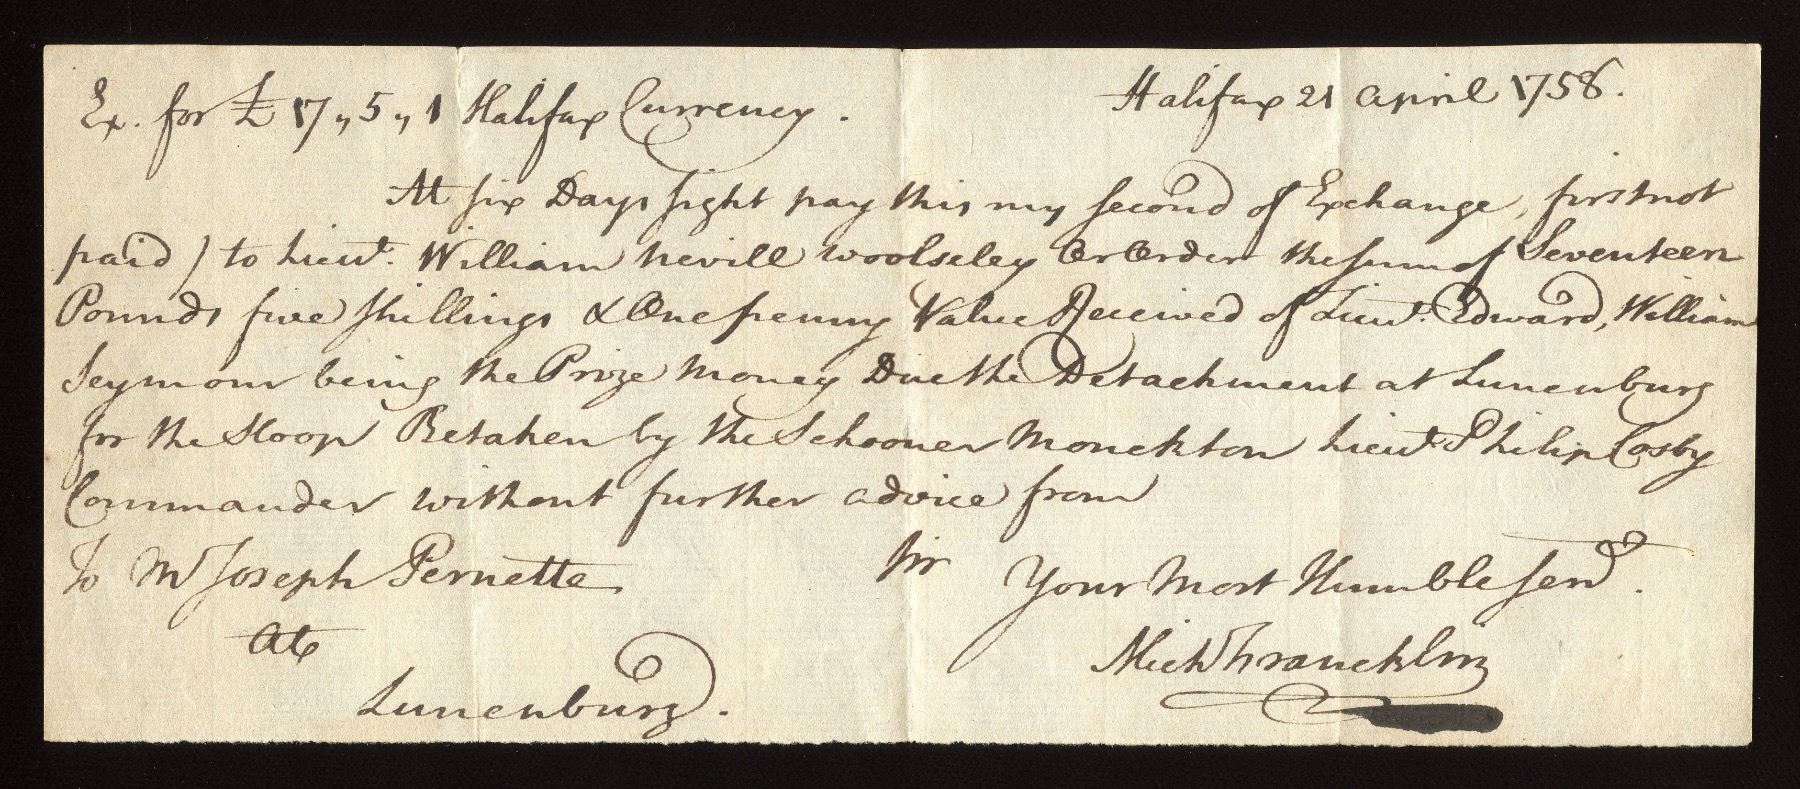 Ex. for £ 17,, 5,, 1 Halifax Currency. Halifax 21 april 1758.
At six Days sight pay this my second of Exchange, first not
paid) to Lieut. William Nevill Woolseley Or Order the sum of Seventeen
Pounds five shillings & One penny Value Received of Lieut. Edward, William
Seymour being the Prize Money Due the Detachment at Lunenburg
for the Sloop Retaken by the Schooner Monckton Lieut. Philip Cosby
Commander without further advice from
Sir
To Mr Joseph Pernette
Your Most Humble Servt.
At
Mich Francklin
Lunenburg.